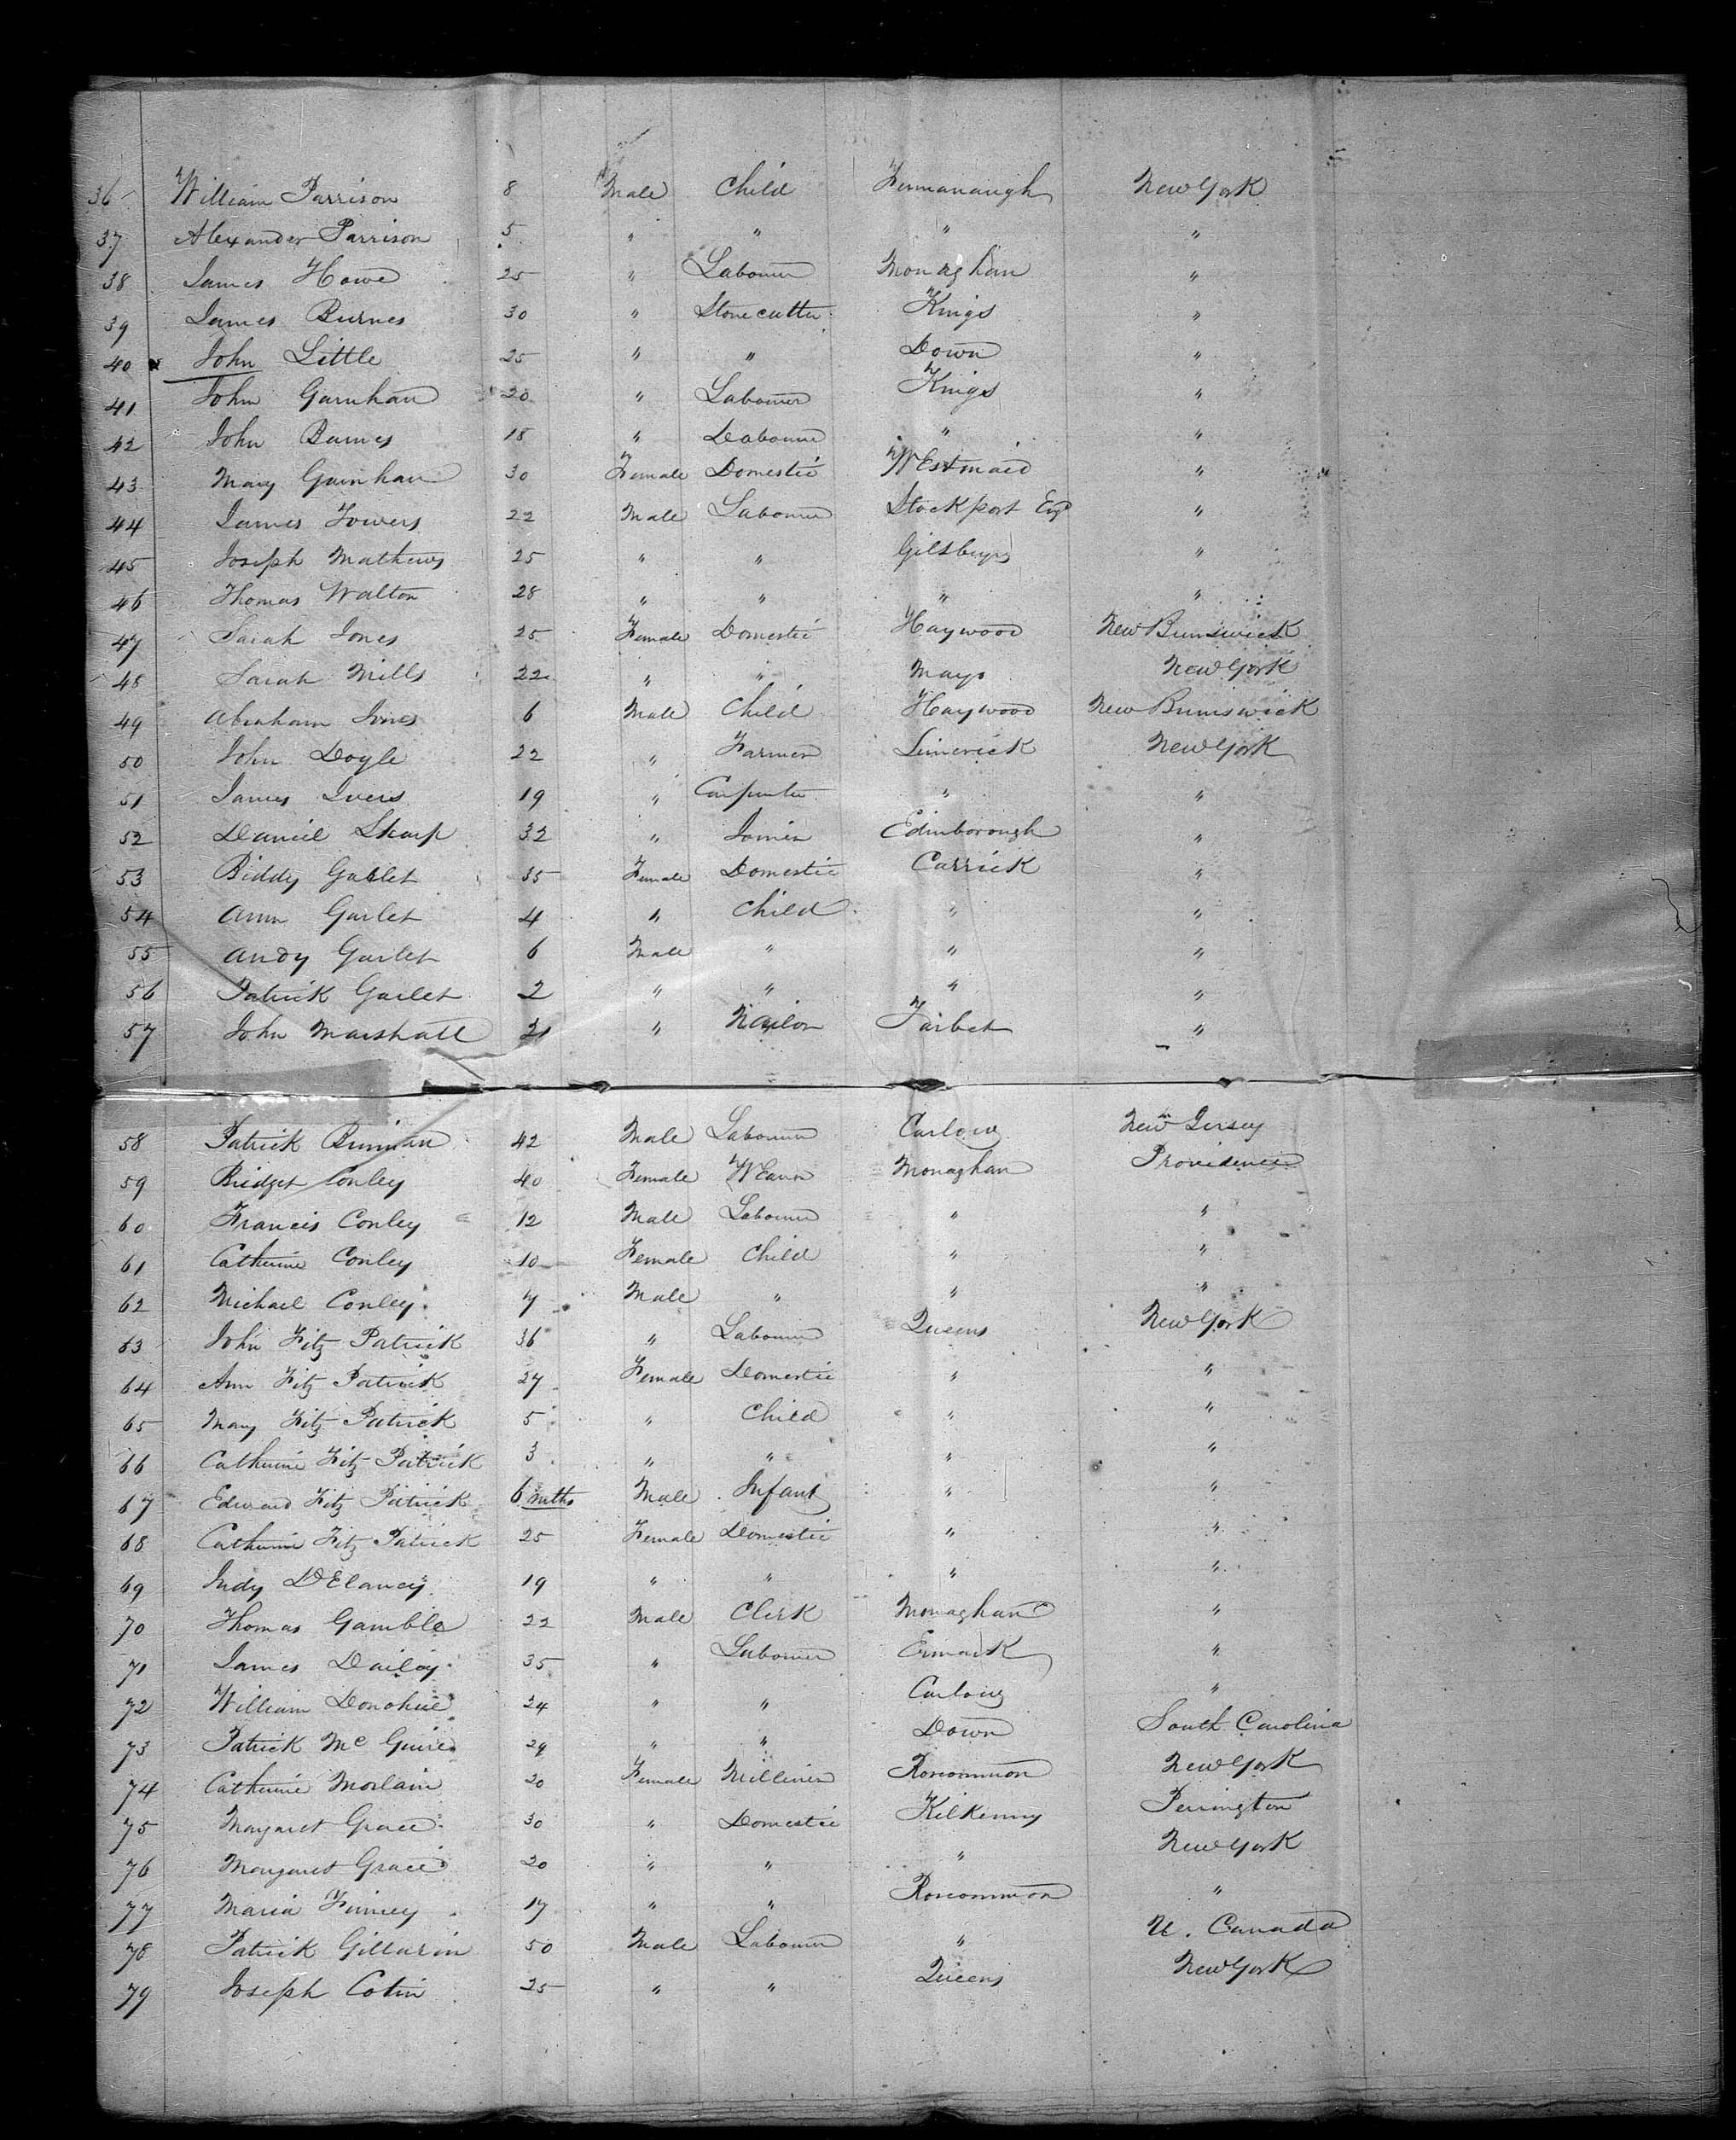 36 William Parrison 8 Male Child Fermanaugh New York
37 Alexander Parrison 5 " " " "
38 James Howe 25 " Labourer Monaghan "
39 James Burnes 30 " Stonecutter Kings "
40 John Little 25 " " Down "
41 John Garnhan 20 " Labourer Kings "
42 John Barnes 18 " Labourer " "
43 Mary Garnhan 30 Female Domestic WEstmaid "
44 James Towers 22 Male Labourer Stockport "
45 Joseph Mathews 25 " " "
46 Thomas Walton 28 " " " "
47 Sarah Jones 25 Female Domestic Haywood New Brunswick
48 Sarah Mills 22 " " Mayo New York
49 Abraham Jones 6 Male Child Haywood New Brunswick
50 John Doyle 22 " Farmer Limerick New York
51 James Ivers 19 " Carpenter " "
52 Daniel Sharp 32 " Joiner Edinborough "
53 Biddy Garlet 35 Female Domestic Carrick "
54 Ann Garlet 4 " Child " "
55 Andy Garlet 6 Male " " "
56 Patrick Garlet 2 " " " "
57 John Marshall 21 " Nailor Tarbet "
58 Patrick 42 Male Labourer Carlow New Jersey
59 Bridget Conley 40 Female WEaver Monaghan Providence
60 Francis Conley 12 Male Labourer " "
61 Catherine Conley 10 Female Child " "
62 Michael Conley 7 Male " " "
63 John Fitz Patrick 36 " Labourer Queens New York
64 Ann Fitz Patrick 27 Female Domestic " "
65 Mary Fitz Patrick 5 " Child " "
66 Catherine Fitz Patrick 3 " " " "
67 Edward Fitz Patrick 6 mths Male Infant " "
68 Catherine Fitz Patrick 25 Female Domestic " "
69 Judy DElaney 19 " " " "
70 Thomas Gamble 22 Male Clerk Monaghan "
71 James Dailey 35 " Labourer Ermack "
72 William Donohue 24 " " Carlow "
73 Patrick Mc Guire 29 " " Down South Carolina
74 Catherine Morlain 20 Female Milliner Roscommon New York
75 Margaret Grace 30 " Domestic Kilkenny Perrington
76 Margaret Grace 20 " " " New York
77 Maria Finney 17 " " Roscommon "
78 Patrick 50 Male Labourer " U. Canada
79 Joseph Cotin 25 " " Queens New York